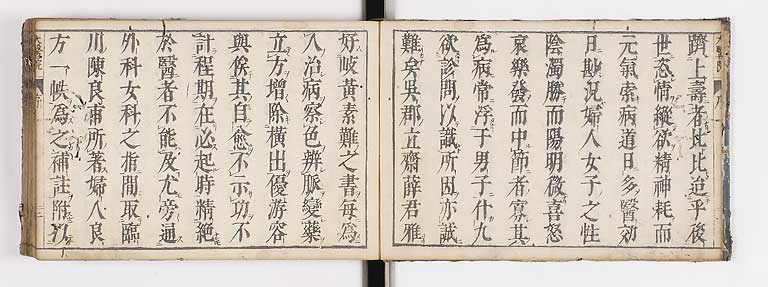 躋上壽者比比迨乎後
世恣情縱欲精神耗而
元氣索病道日多醫効
日尠況婦人女子之性
陰濁勝而陽明微喜怒
哀樂發而中節者寡其
為病常浮于男子什九
欲診問以識所因亦誠
難矣吳郡立齋薛君雅
好岐黃素難之書每為
人治病察色辨脈變藥
立方增除橫出優游容
與俟其自愈不示功不
計程期在必起時精絕
於醫者不能及尤旁通
外科女科之指間取臨
川陳良甫所著婦人良
方一帙為之補註附以